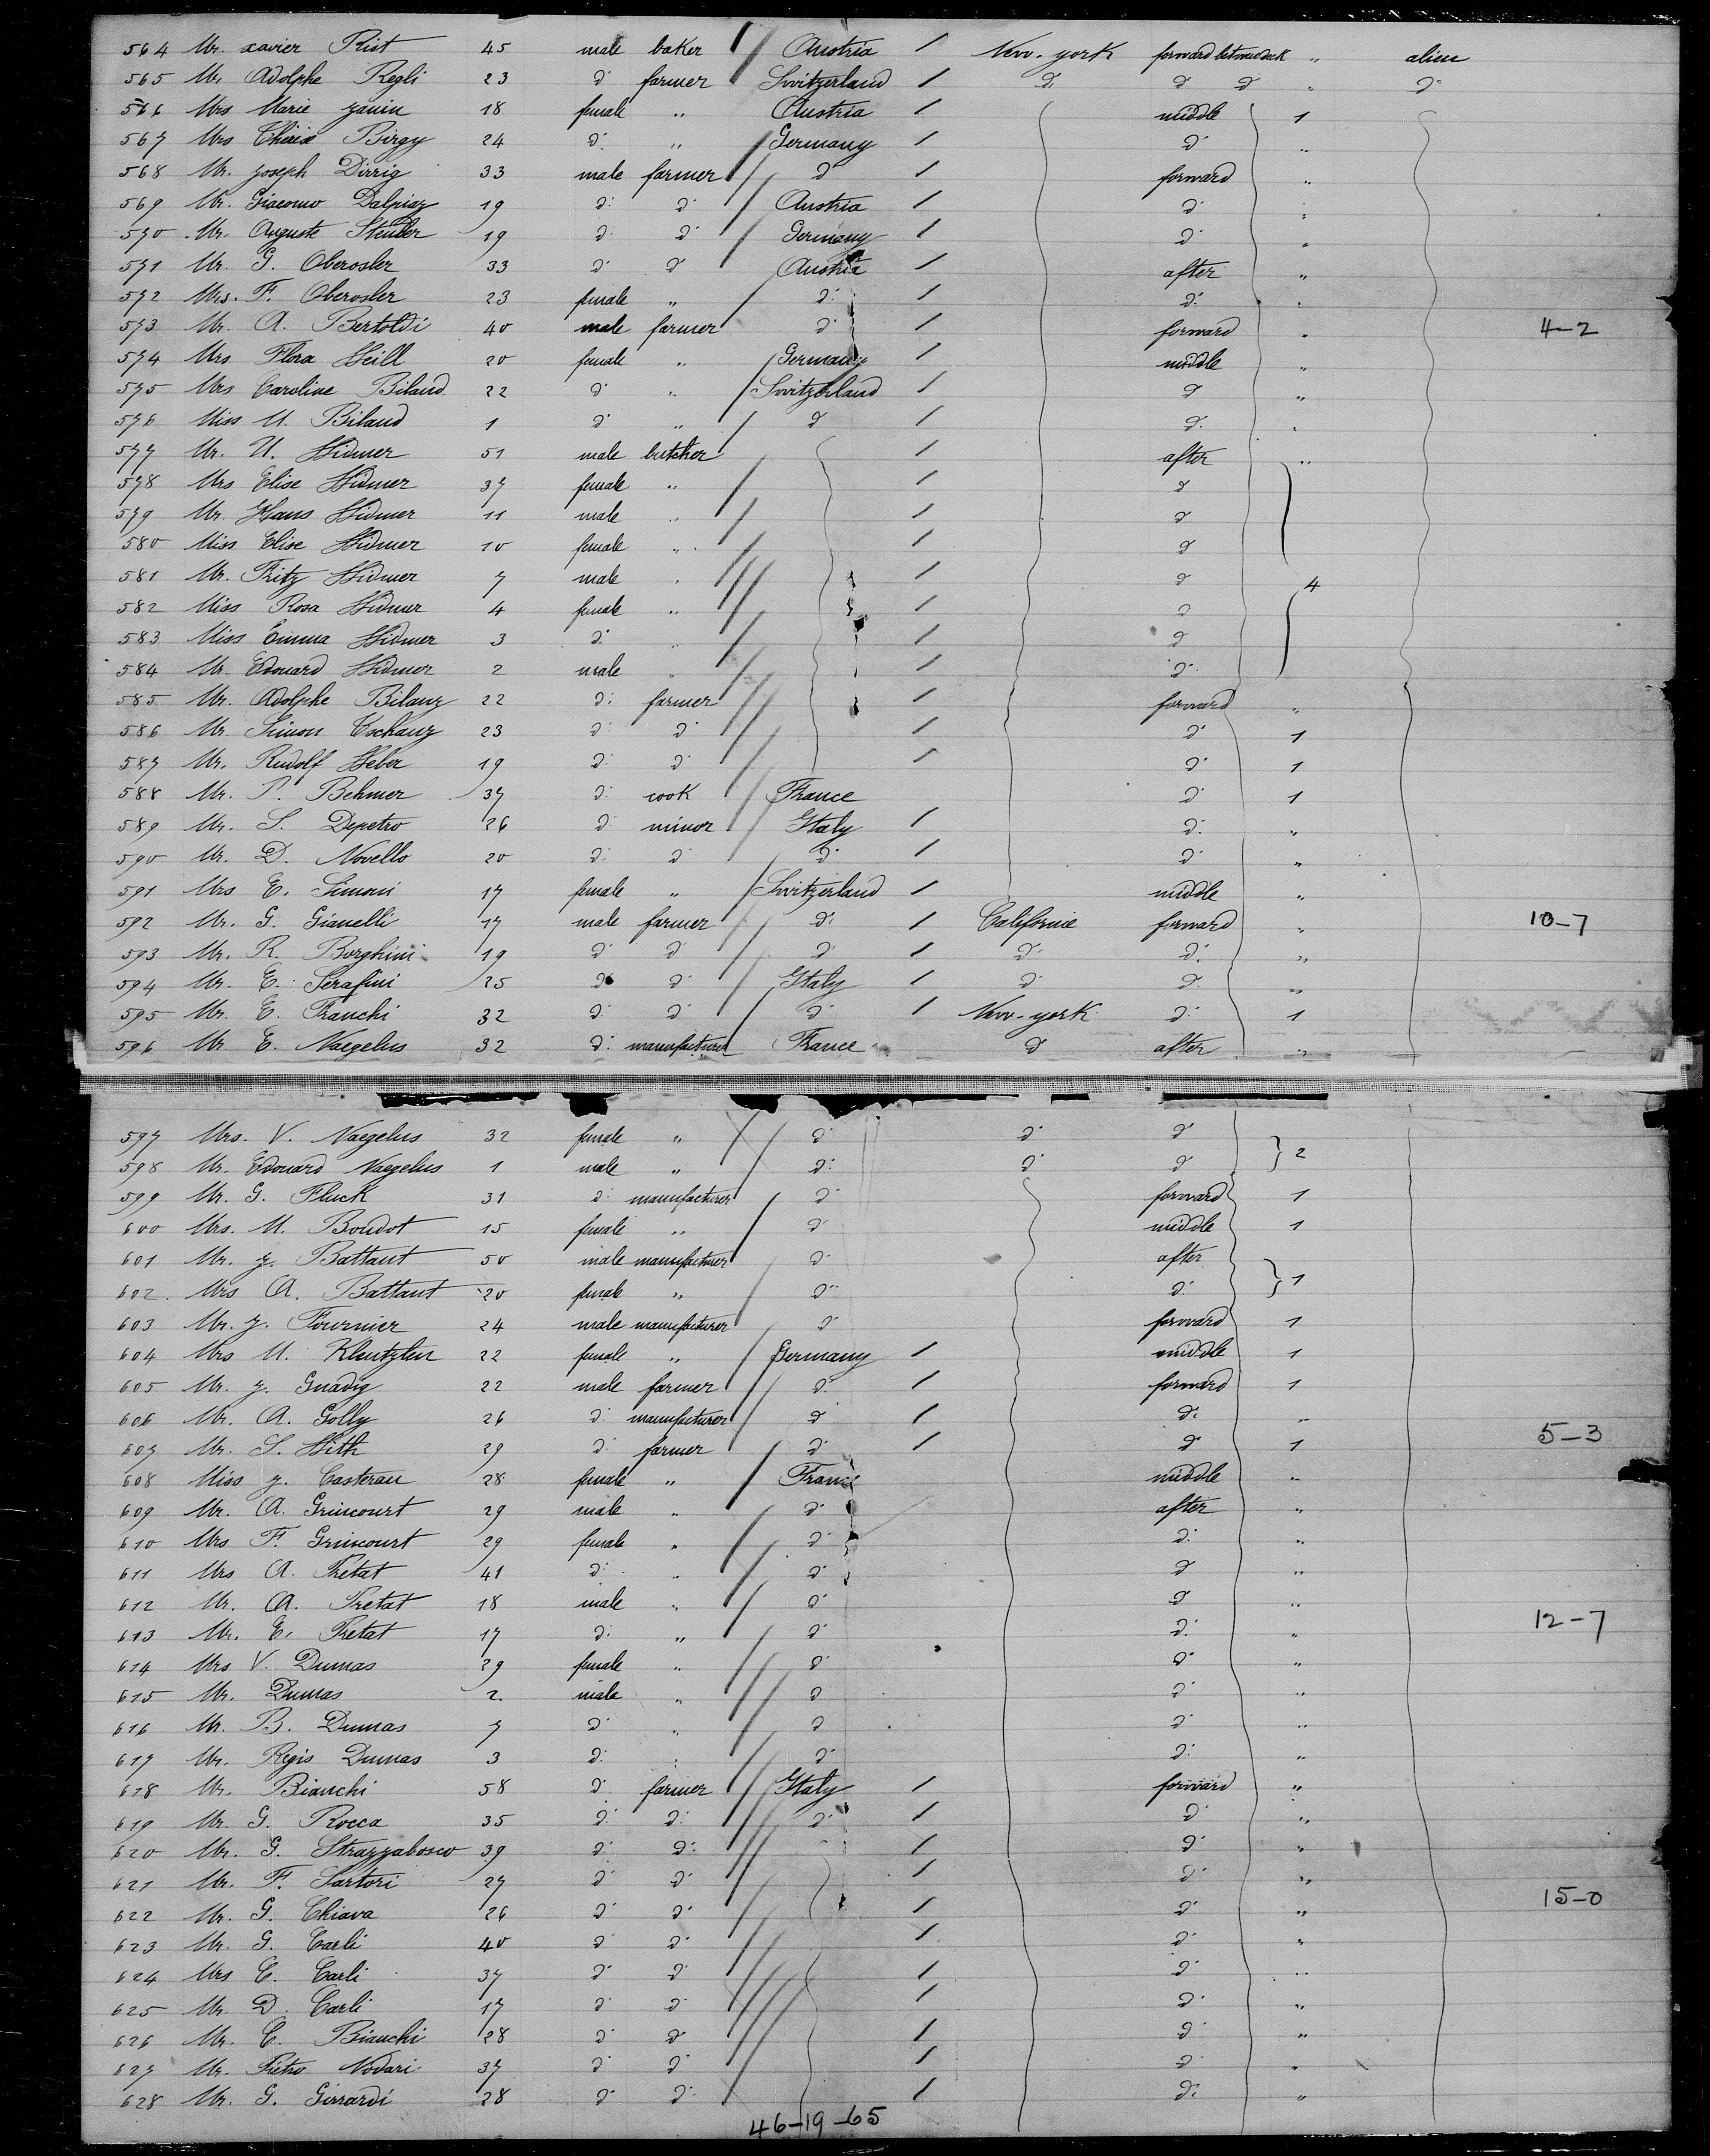 564 Mr. xavier Rist 45 male baker Austria / New-york forward betweendeck " alien
565 Mr Adolphe Regli 23 d: farmer Switzerland / d: d d " d:
566 Mrs Marie 18 female " Austria / middle 1
567 Mrs Birgy 24 d: " Germany / d: "
568 Mr. joseph Dirrig 33 male farmer d / forward "
569 Mr. Giacomo Dalpiaz 19 d: d: Austria / d: "
570 Mr. Auguste Steuber 19 d: d: Germany / d: "
571 Mr. G. Oberosler 33 d: d Austria / after "
572 Mrs. F. Oberosler 23 female " d: / d: "
573 Mr. A. Bertoldi 40 male farmer d: / forward " 4-2
574 Mrs Flora Weill 20 female " Germany / middle "
575 Mrs Caroline Biland 22 d: " Switzerland / d "
576 Miss M. Biland 1 d: " d / d: "
577 Mr. U. Widmer 51 male butcher / after "
578 Mrs Elise Widmer 37 female " / d
579 Mr. Hans Widmer 11 male " / d
580 Miss Elise Widmer 10 female " / d
581 Mr. Fritz Widmer 7 male " / d 4
582 Miss Rosa Widmer 4 female " / d
583 Miss Emma Widmer 3 d: " / d
584 Mr. Edouard Widmer 2 male " / d:
585 Mr. Adolphe Bilang 22 d: farmer / forward "
586 Mr. Simon Tschanz 23 d: d: / d: 1
587 Mr. Rudolf Weber 19 d: d: / d: 1
588 Mr. P. Behmer 37 d: cook France d: 1
589 Mr. S. Depetro 26 d: minor Italy / d: "
590 Mr. D. Novello 20 d: d: d: / d: "
591 Mrs E. Simoni 17 female " Switzerland / middle "
592 Mr. G. Gianelli 17 male farmer d: / Californie forward " 10-7
593 Mr. R. Borghini 19 d: d: d: / d: d: "
594 Mr. E. Serafini 25 d: d: Italy / d: d: "
595 Mr. E. Franchi 32 d: d: d: / New-york d: 1
596 Mr E. Naegelus 32 d: manufacturer France d: after "
597 Mrs. V. Naegelus 32 female " d: d: d:
598 Mr. Edouard Naegelus 1 male " d: d: d 2
599 Mr. G. Fluck 31 d: manufacturer d: forward 1
600 Mrs. M. Boudot 15 female " d: middle 1
601 Mr. y. Battaut 50 male manufacturer d: after
602. Mrs A. Battaut 20 female " d: d: 1
603 Mr. y. Fournier 24 male manufacturer d: forward 1
604 Mrs M. Kleutzlen 22 female " Germany / middle 1
605 Mr. y. Gnadig 22 male farmer d: / forward 1
606 Mr. A. Golly 26 d: manufacturer d / d: "
607 Mr. S. With 29 d: farmer d: / d: 1 5-3
608 Miss y. Casterau 28 female " France middle "
609 Mr. A. Grincourt 29 male " d: after "
610 Mrs F. Grincourt 29 female " d: d: "
611 Mrs A. Pretat 41 d: " d: d "
612 Mr. A. Pretat 18 male " d: d "
613 Mr. E. Pretat 17 d: " d: d: " 12-7
614 Mrs V. Dumas 29 female " d: d: "
615 Mr. Dumas 2. male " d d: "
616 Mr. B. Dumas 7 d: " d d: "
617 Mr. Regis Dumas 3 d: " d: d: "
618 Mr. Bianchi 58 d: farmer Italy / forward "
619 Mr. G. Rocca 35 d: d: d: / d: "
620 Mr. G. Strazzabosco 39 d: d: / d: "
621 Mr. F. Sartori 27 d: d: / d: "
622 Mr. G. Chiava 26 d: d: / d: " 15-0
623 Mr. G. Carli 40 d: d: / d: "
624 Mrs C. Carli 37 d: d: / d: "
625 Mr. D. Carli 17 d: d: / d: "
626 Mr. C. Bianchi 28 d: d: / d: "
627 Mr. Pietro Nodari 37 d: d: / d: "
628 Mr. G. Girrardi 28 d: d: / d: "
46-19-65